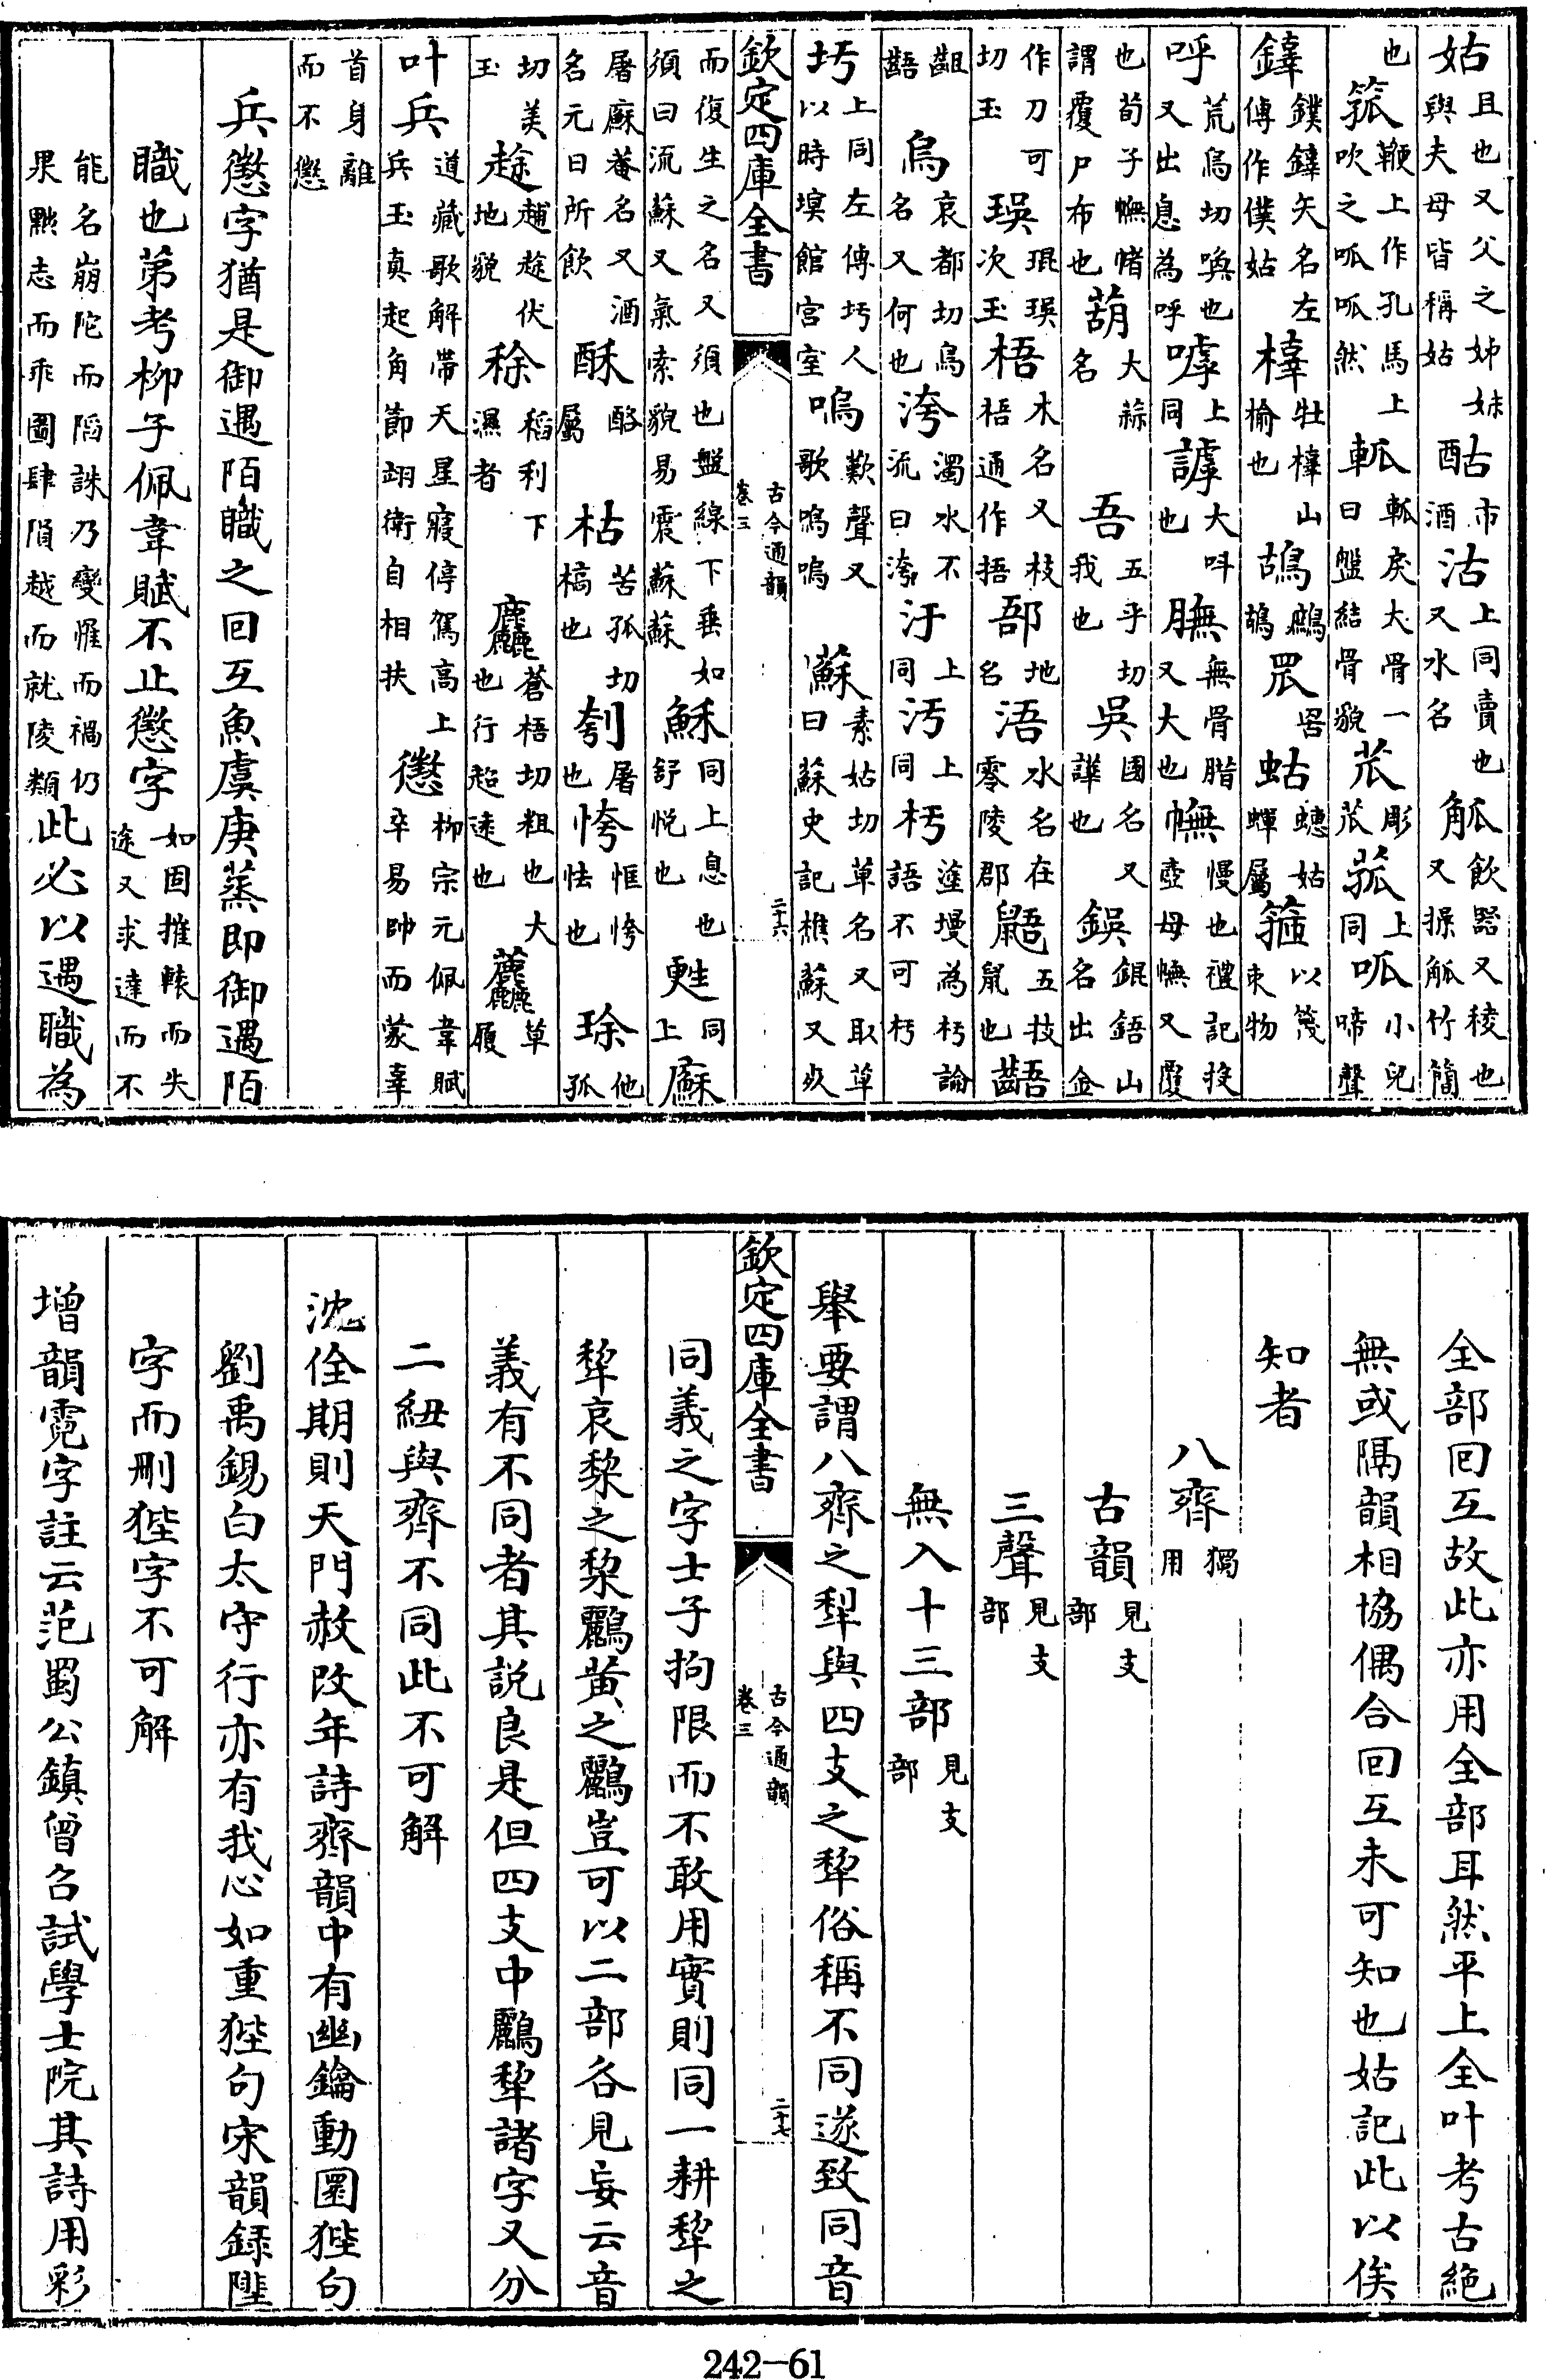 姑且也又父之姊妹與夫母皆稱姑酤市酒沽上同賣也又水名觚飲器又稜也又操觚竹簡
也箛鞭上作孔馬上吹之呱呱然軱軱戾大骨一曰盤結骨貌苽彫苽菰上同呱小兒啼聲
鏄鏷鏄矢名左傳作僕姑橭牡橭山榆也鴣鷓鴣罛罟蛄蟪蛄蟬屬箍以篾束物
呼荒烏切喚也又出息為呼嘑上同謼大叫也膴無骨腊又大也幠慢也禮記投壺毋幠又覆
也荀子幠帾謂覆尸布也葫大蒜名吾五乎切我也吳國名又譁也鋘錕鋙山名出金
作刀可切玉珸琨珸次玉梧木名又枝梧通作捂郚地名浯水名在零陵郡鼯五技鼠也齬
齟齬烏哀都切烏名又何也洿濁水不流曰洿汙上同汚上同杇塗墁為杇論語不可杇
圬上同左傳圬人以時塓館宮室嗚歎聲又歌嗚嗚蘇素姑切草名又取草曰蘇史記樵蘇又死
欽定四庫全書 古今通韻 卷三 二十六
而復生之名又須也盤線下垂如須曰流蘇又氣索貌易震蘇蘇穌同上息也舒悅也甦同上廯
屠廯菴名又酒名元日所飲酥酪屬枯苦孤切槁也刳屠也恗恇恗怯也也㻌他孤
切美玉𧼯䞮𧼯伏地貌稌稻利下濕者麤蒼梧切粗也大也行超遠也𧆓草履
叶兵道藏歌解帶天星寢停駕高上兵玉真起角節翊衛自相扶懲柳宗元佩韋賦卒易帥而蒙辜
首身離而不懲
兵懲字猶是御遇陌職之回互魚虞庚蒸即御遇陌
職也第考柳子佩韋賦不止懲字如固摧轅而失途又求達而不
能名崩陀而滔誅乃變惟而禍仍果黜志而乖圖肆隕越而就陵類此必以遇職為
全部回互故此亦用全部耳然平上全叶考古絕
無或隔韻相協偶合回互未可知也姑記此以俟
知者
八齊獨用
古韻見支部
三聲見支部
無入十三部見支部
舉要謂八齊之犁與四支之犂俗稱不同遂致同音
欽定四庫全書 古今通韻 卷三 二十七
同義之字士子拘限而不敢用實則同一耕犂之
犂哀黎之黎鸝黃之鸝豈可以二部各見妄云音
義有不同者其説良是但四支中鸝犂諸字又分
二紐與齊不同此不可解
沈佺期則天門赦改年詩齊韻中有幽鑰動圜狴句
劉禹錫白太守行亦有我心如重狴句宋韻錄陛
字而刪狴字不可解
增韻霓字註云范蜀公鎮曾召試學士院其詩用彩
242-61